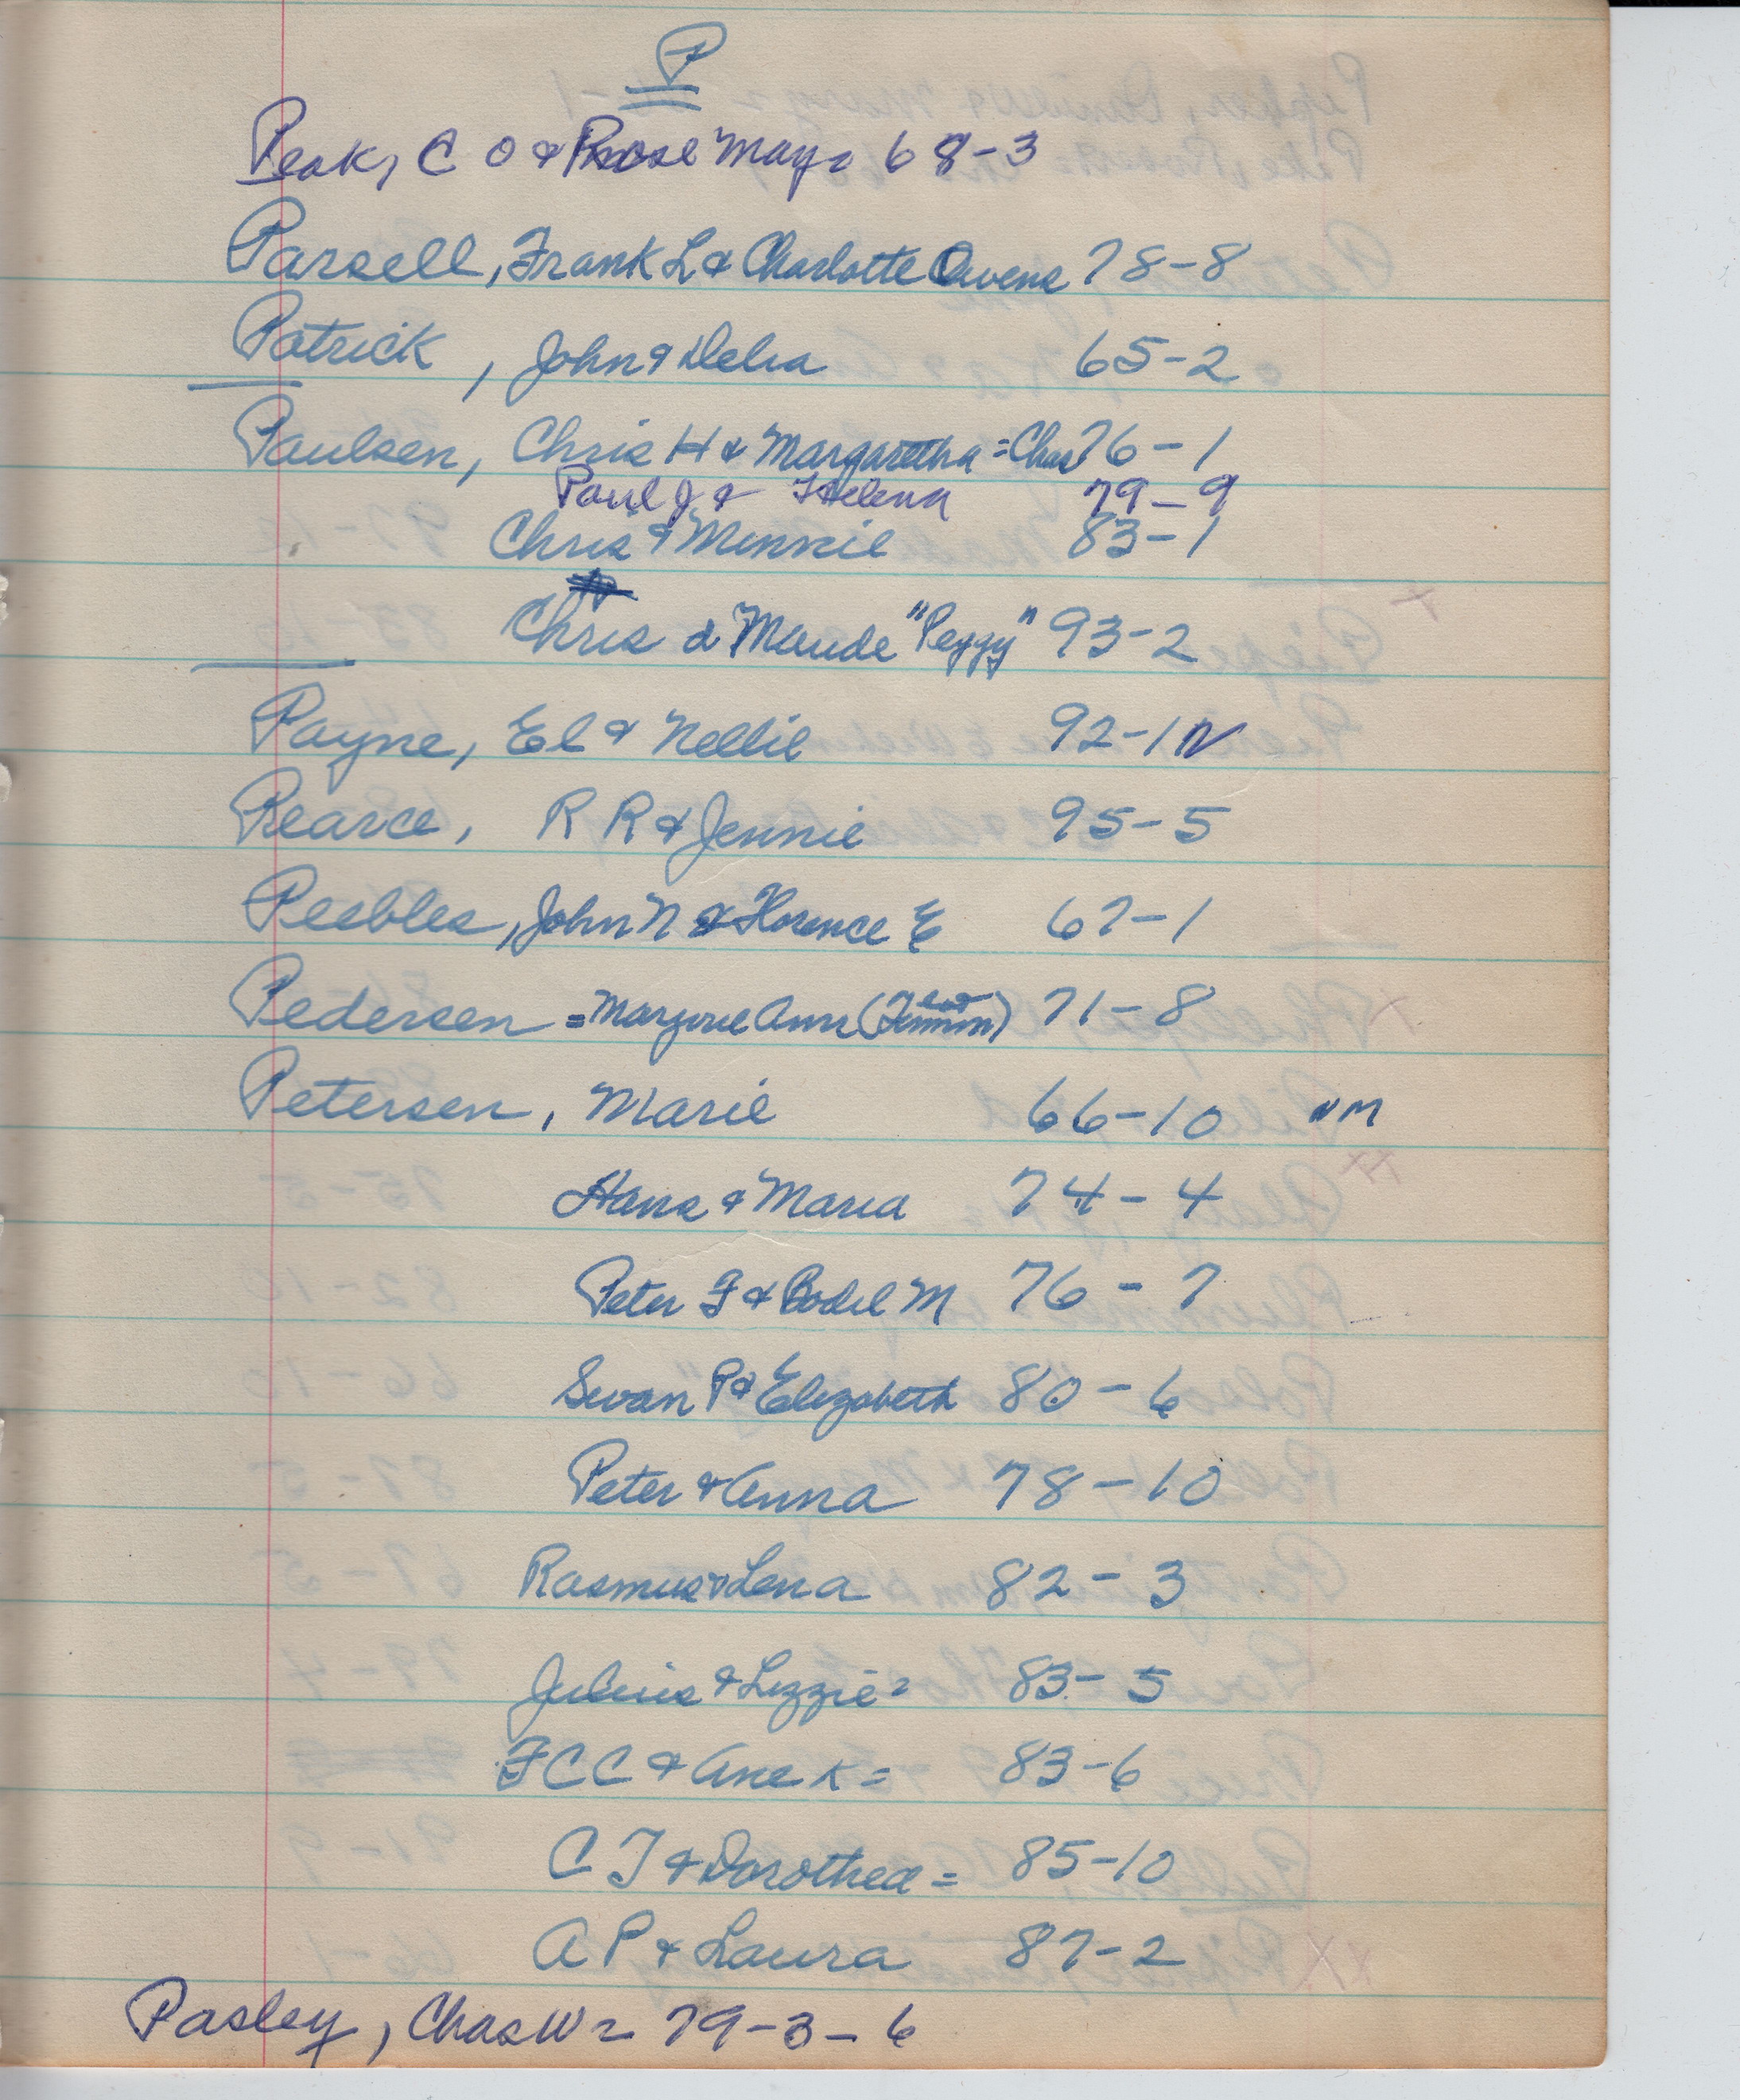 P
Peak, C O & Rose May = 68-3
Parsell, Frank L & Charlotte Owens 78-8
Patrick, John & Delia 65-2
Paulsen, Chris H & Margaretha = Chas 76-1
Paul J & Helena 79-9
Chris & Minnie 83-1
Chris & Maude "Peggy" 93-2
Payne, El & Nellie 92-1 N
Pearce, R R & Jennie 95-5
Peebles, John N & Florence E 67-1
Pedersen = Marjorie Ann 71-8
Petersen, Marie 66-10 NM
Hans & Maria 74-4
Peter F & Bodil M 76-7
Swan P & Elizabeth 80-6
Peter & Anna 78-10
Rasmus & Lena 82-3
Julius & Lizzie = 83-5
F C C & Ane K = 83-6
C J & Dorothea = 85-10
A P & Laura 87-2
Pasley, Chas W = 79-3-6